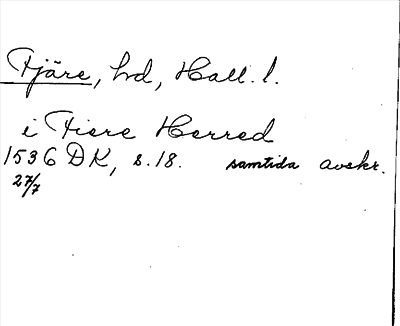 Fjäre, hd, Hall. l.
i Fiere Herred
1536 DK, s. 18. samtida avskr.
27/7